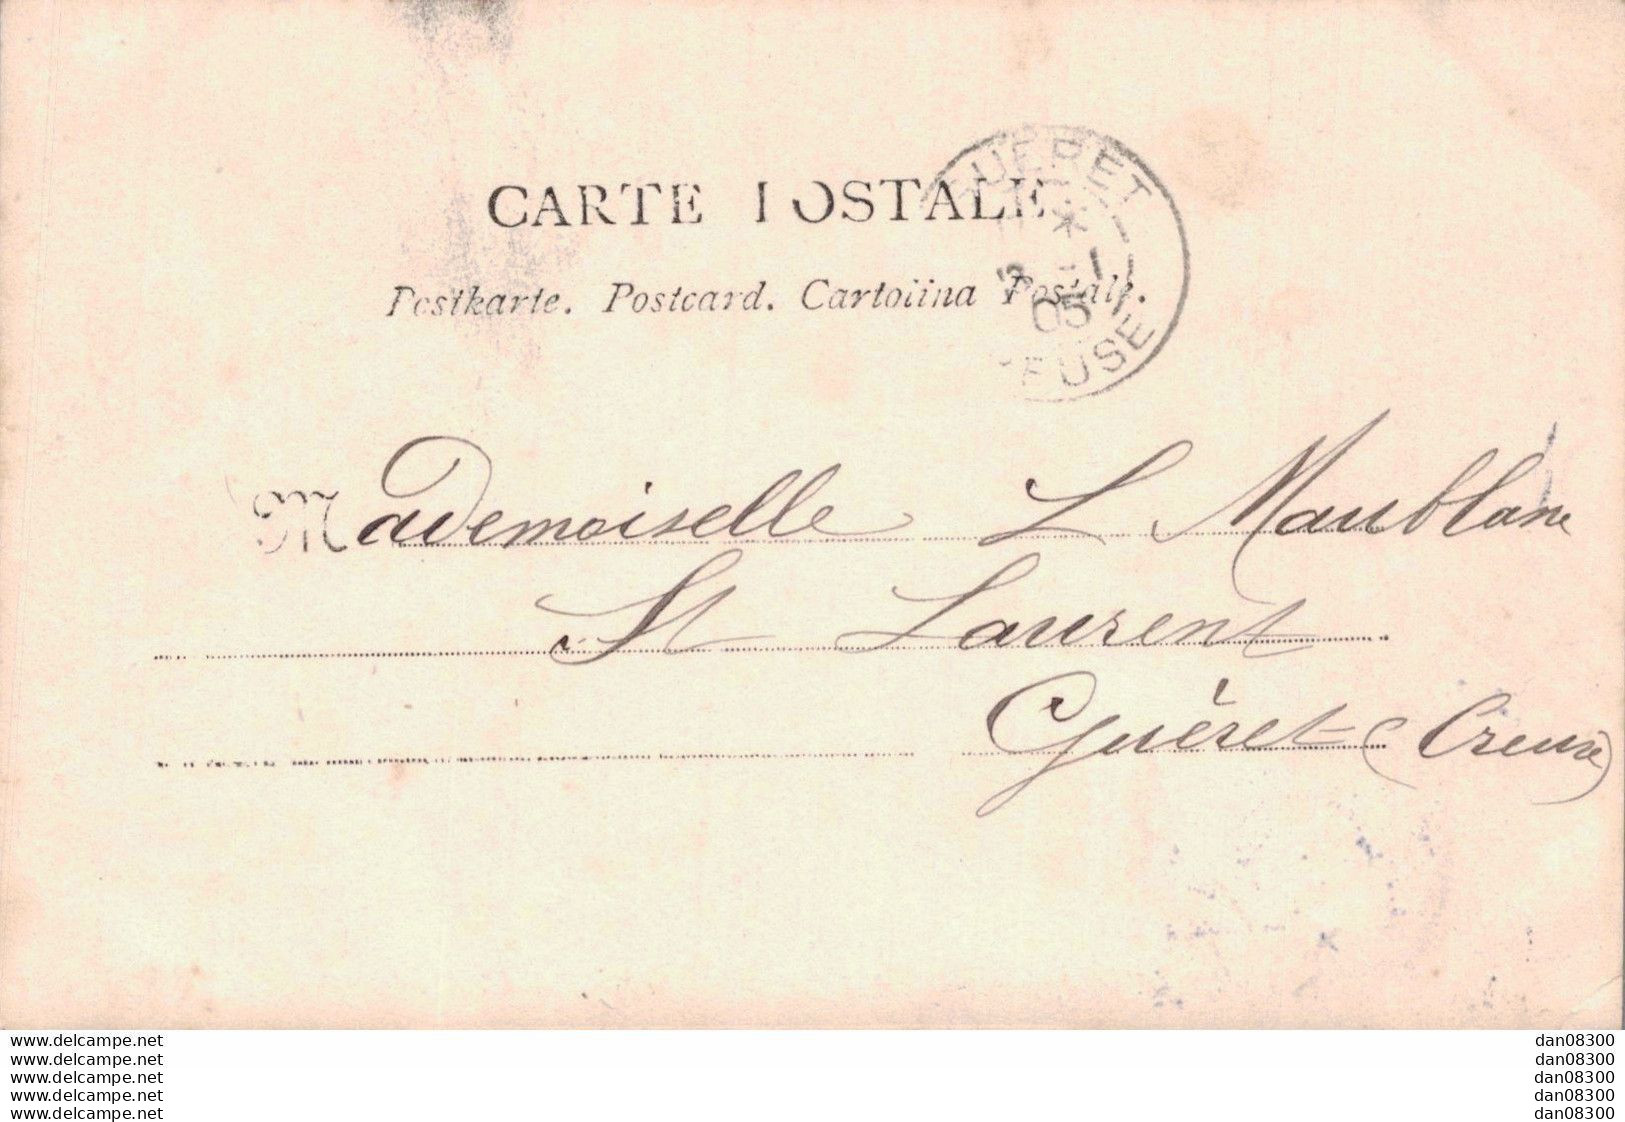 CARTE POSTALE
Postkarte. Postcard. Cartolina Postale.
GUÉRET
05
CREUSE
Mademoiselle L Maublanc
St Laurent
Guèret (Creuse)
www.delcampe.net dan08300
www.delcampe.net dan08300
www.delcampe.net dan08300
www.delcampe.net dan08300
www.delcampe.net dan08300